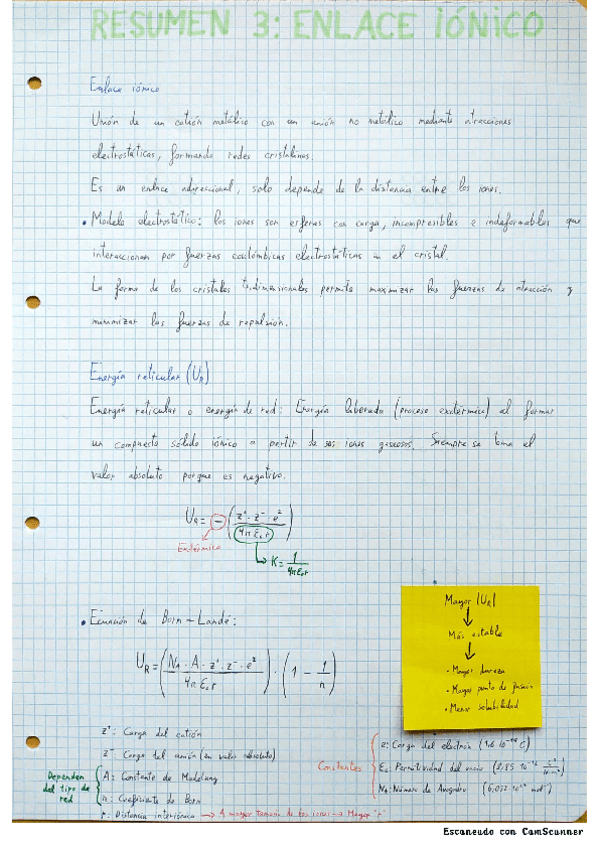 RESUMEN 3: ENLACE IÓNICO
Enlace iónico
Unión de un catión metálico con un anión no metálico mediante atracciones
electrostáticas, formando redes cristalinas.
Es un enlace adireccional, solo depende de la distancia entre los iones.
• Modelo electrostático: los iones son esferas con carga, incompresibles e indeformables que
interaccionan por fuerzas coulómbicas electrostáticas en el cristal.
La forma de los cristales tridimensionales permite maximizar las fuerzas de atracción y
minimizar las fuerzas de repulsión.
Energía reticular (UR)
Energía reticular o energía de red: Energía liberada (proceso exotérmico) al formar
un compuesto sólido iónico a partir de sus iones gaseosos. Siempre se toma el
valor absoluto porque es negativo.
UR = - (z⁺ · z⁻ · e² / 4π ε₀ r)
Exotérmico
K = 1 / 4π ε₀ r
• Ecuación de Born - Landé:
UR = (NA · A · z⁺ · z⁻ · e² / 4π ε₀ r) · (1 - 1/n)
Mayor |UR|
↓
Más estable
↓
• Mayor dureza
• Mayor punto de fusión
• Menor solubilidad
z⁺: Carga del catión
z⁻: Carga del anión (en valor absoluto)
Dependen del tipo de red
A: Constante de Madelung
n: Coeficiente de Born
r: Distancia interiónica → A mayor tamaño de los iones → Mayor "r"
Constantes
e: Carga del electrón
ε₀: Permitividad del vacío
NA: Número de Avogadro
Escaneado con CamScanner